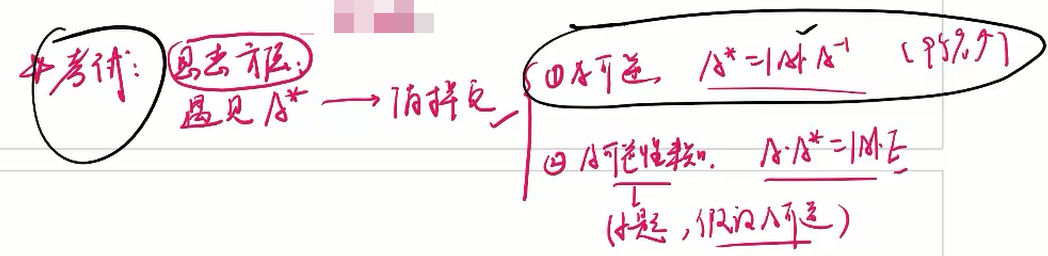 * 考试: 思考方法:
遇见 A* → 有择免
① A可逆, A* = |A| A⁻¹ (95%分)
② A可逆性未知. A·A* = |A|·E
(小题, 假设A可逆)